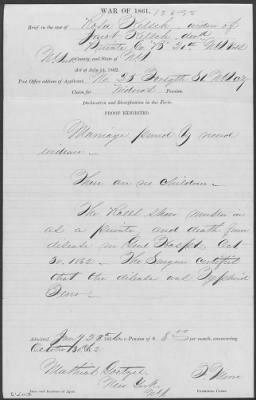 WAR OF 1861.
Brief in the case of Rosa widow of
Jacob dec'd
Private Co. "B" 20th NY Vol
County, and State of NY
Act of July 14, 1862.
Post Office address of Applicant, No 28 Forsyth St NY City
Claim for Widow's Pension.
Declaration and Identification in due Form.
PROOF EXHIBITED.
Marriage proved by record
evidence.
There are no children.
The Rolls show muster in
as a private and death from
disease in Genl Hospl Oct
30, 1862. The Surgeon certified
that the disease was Typhoid
Fever.
Admitted Jany 1863 to a Pension of $ 8.00 per month, commencing
October 30 1862
New York
NY
Examining Clerk.